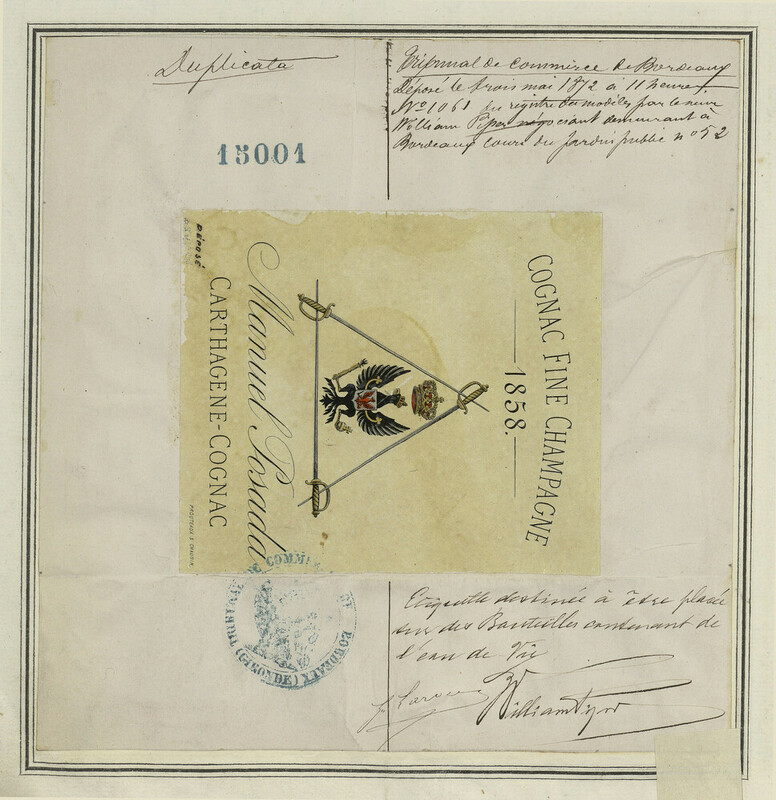 Duplicata
15001
Tribunal de Commerce de Bordeaux
Déposé le trois mai 1872 à 11 heures.
N° 1061 du registre des modèles par le sieur
William négociant demeurant à
Bordeaux cours du Jardin public n° 52
DÉPOSÉ
COGNAC FINE CHAMPAGNE
1858.
Manuel Posada
CARTHAGENE-COGNAC
TRIBUNAL DE COMMERCE DE BORDEAUX
(GIRONDE)
Etiquette destinée à être placée
sur des Bouteilles contenant de
l'eau de Vie
William